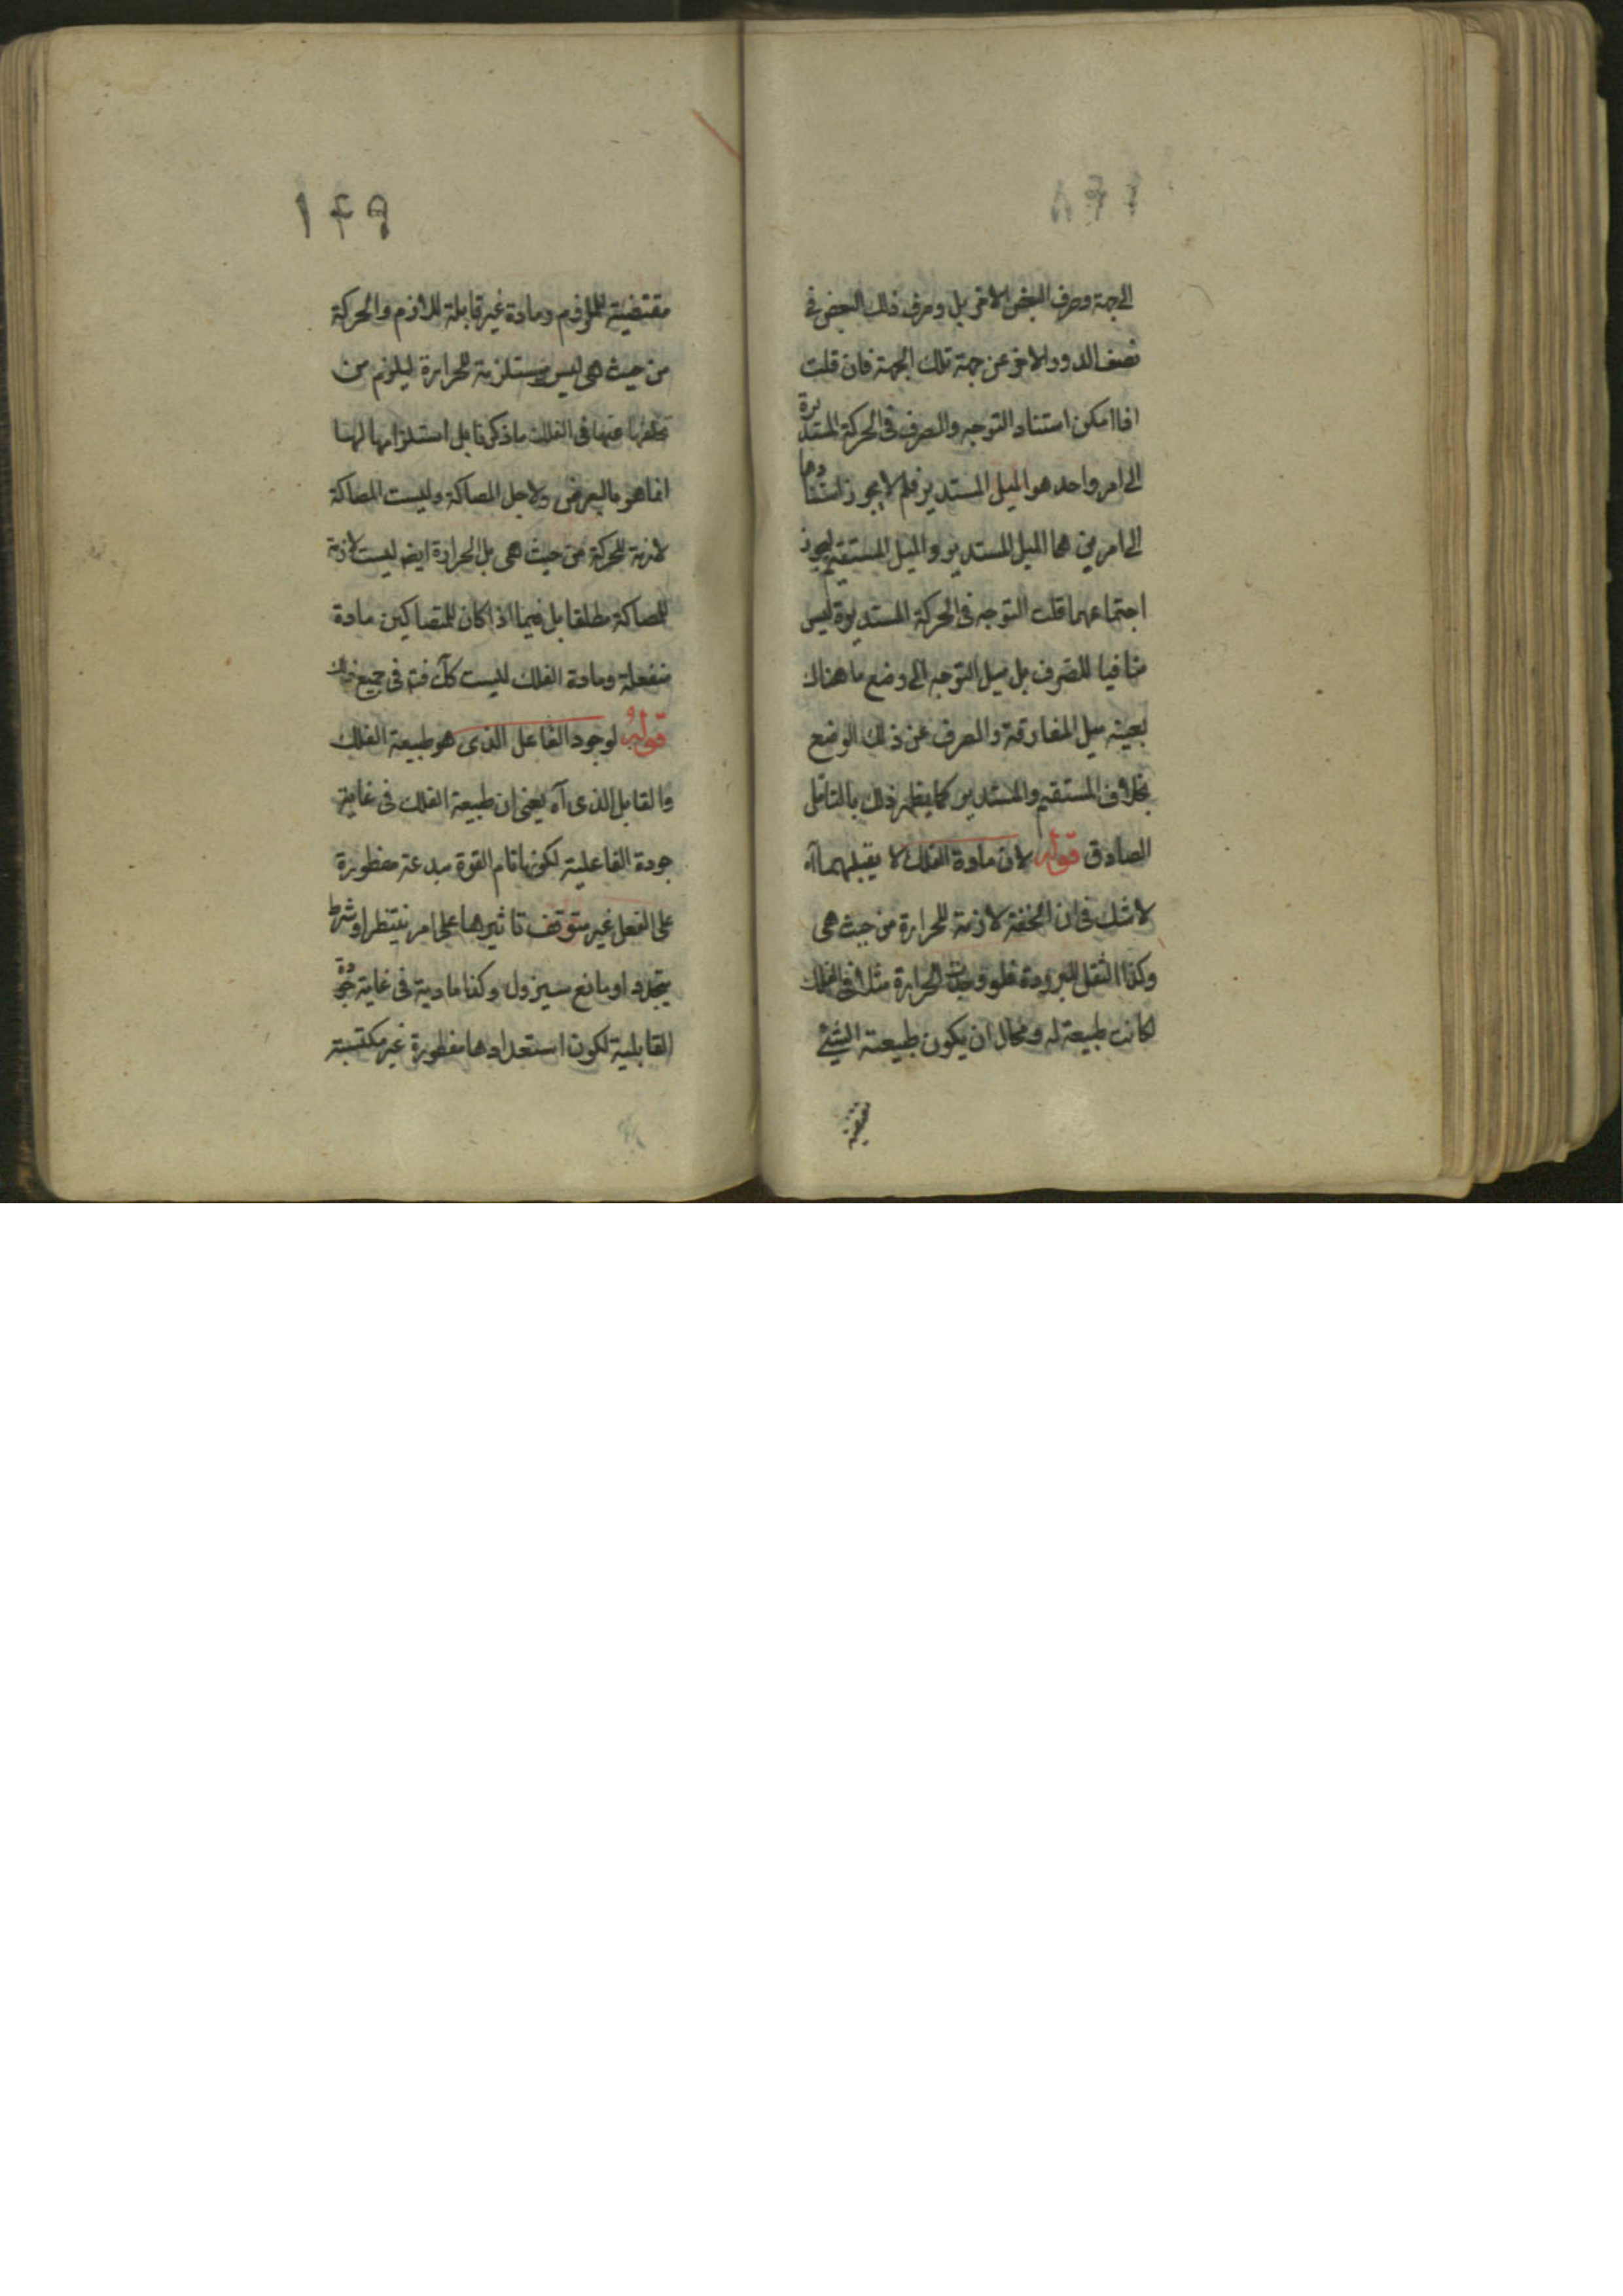 الى جهة وصرف البعض الاخر بل وصرف ذلك البعض فى
نصف الدور الاخر عن جهة تلك الجهة فان قلت
اذا امكن استناد التوجه والصرف فى الحركة المستديرة
الى امر واحد هو الميل المستدير فلم لا يجوز استنادهما
الى امرين هما الميل المستدير والميل المستقيم ليجوز
اجتماعهما قلت التوجه فى الحركة المستديرة ليس
منافيا للصرف بل ميل التوجه الى وضع ما هناك
بعينه ميل المفارقة والصرف عن ذلك الوضع
بخلاف المستقيم والمستدير كما يظهر ذلك بالتامل
الصادق قوله لان مادة الفلك لا يقبلهما آه
لا شك فى ان الخفة لازمة للحرارة من حيث هى
وكذا الثقل للبرودة فلو وجدت الحرارة مثلا فى الفلك
لكانت طبيعة له ومحال ان يكون طبيعة الشئ
مقتضية
١٤٩
مقتضية للملزوم ومادة غير قابلة للازم والحركة
من حيث هى ليس مستلزمة للحرارة ليلزم من
تخلفها عنها فى الفلك ما ذكر تا بل استلزامها لها
انما هو بالعرض ولاجل المصاكة وليست المصاكة
لازمة للحركة من حيث هى بل الحرارة ايضا ليست لازمة
للمصاكة مطلقا بل فيما اذا كان للمتصاكين مادة
منفعلة ومادة الفلك ليست كك فى جميع ذلك
قوله لوجود الفاعل الذى هو طبيعة الفلك
والقابل الذى آه يعنى ان طبيعة الفلك فى غاية
جودة الفاعلية لكونها تام القوة مبدعة مفطورة
على الفعل غير متوقف تاثيرها على امر ينتظر او شرط
يتجدد او مانع سيزول وكذا مادية فى غاية جودة
القابلية لكون استعدادها مفطورة غير مكتسبة